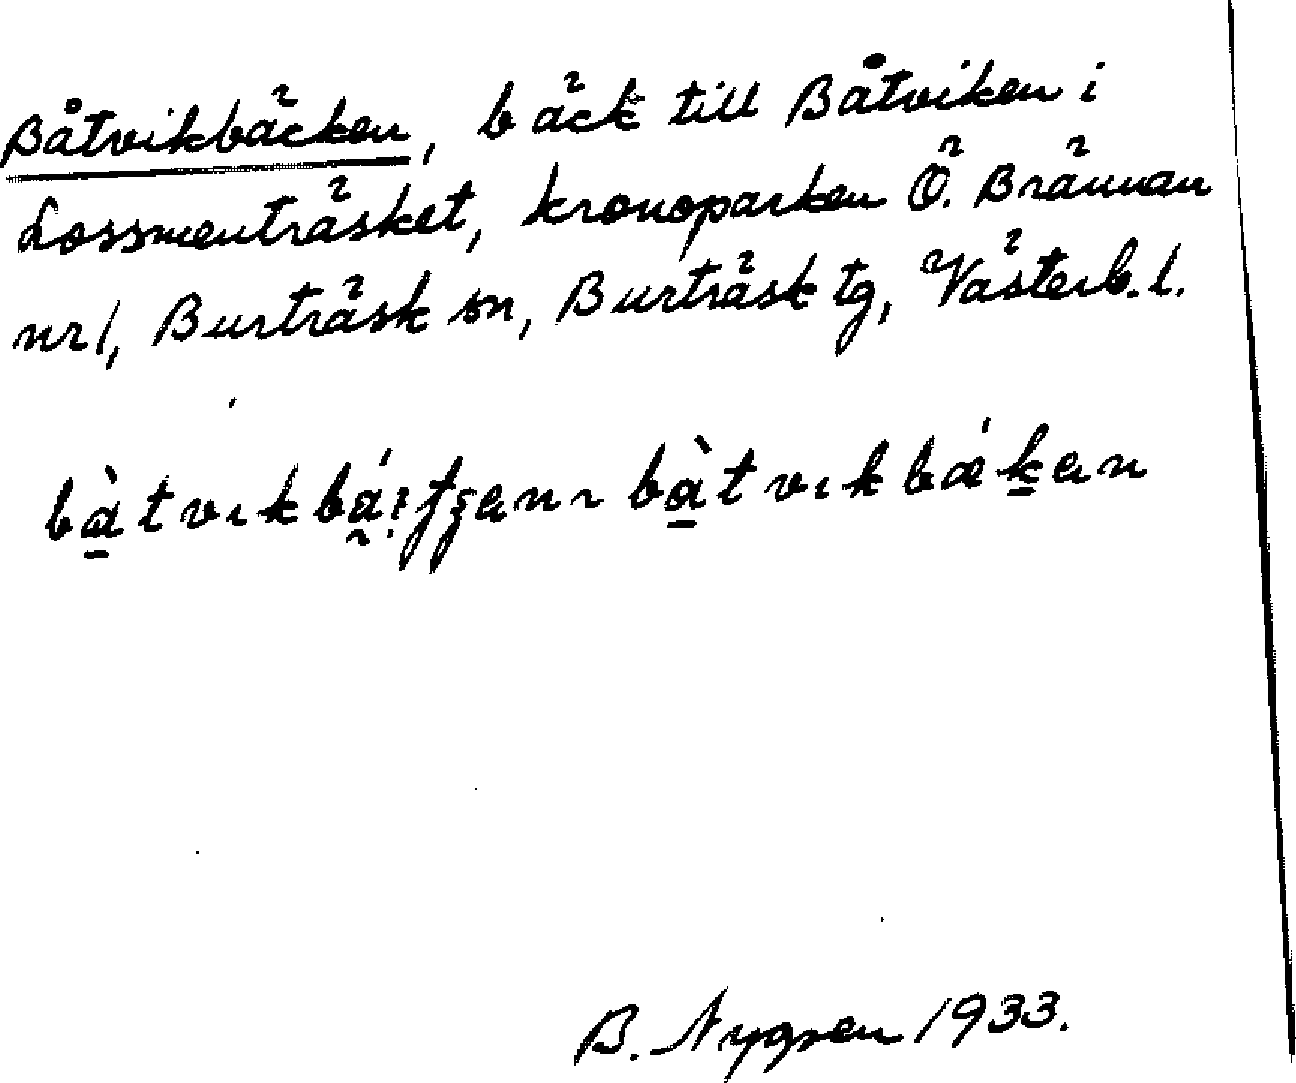 Båtvikbäcken, bäck till Båtviken i
Lossmenträsket, kronoparken Ö. Brännan
nr 1, Burträsk sn, Burträsk tg, Västerb. l.
bàtvıkbæ̀kən
B. Nygren 1933.